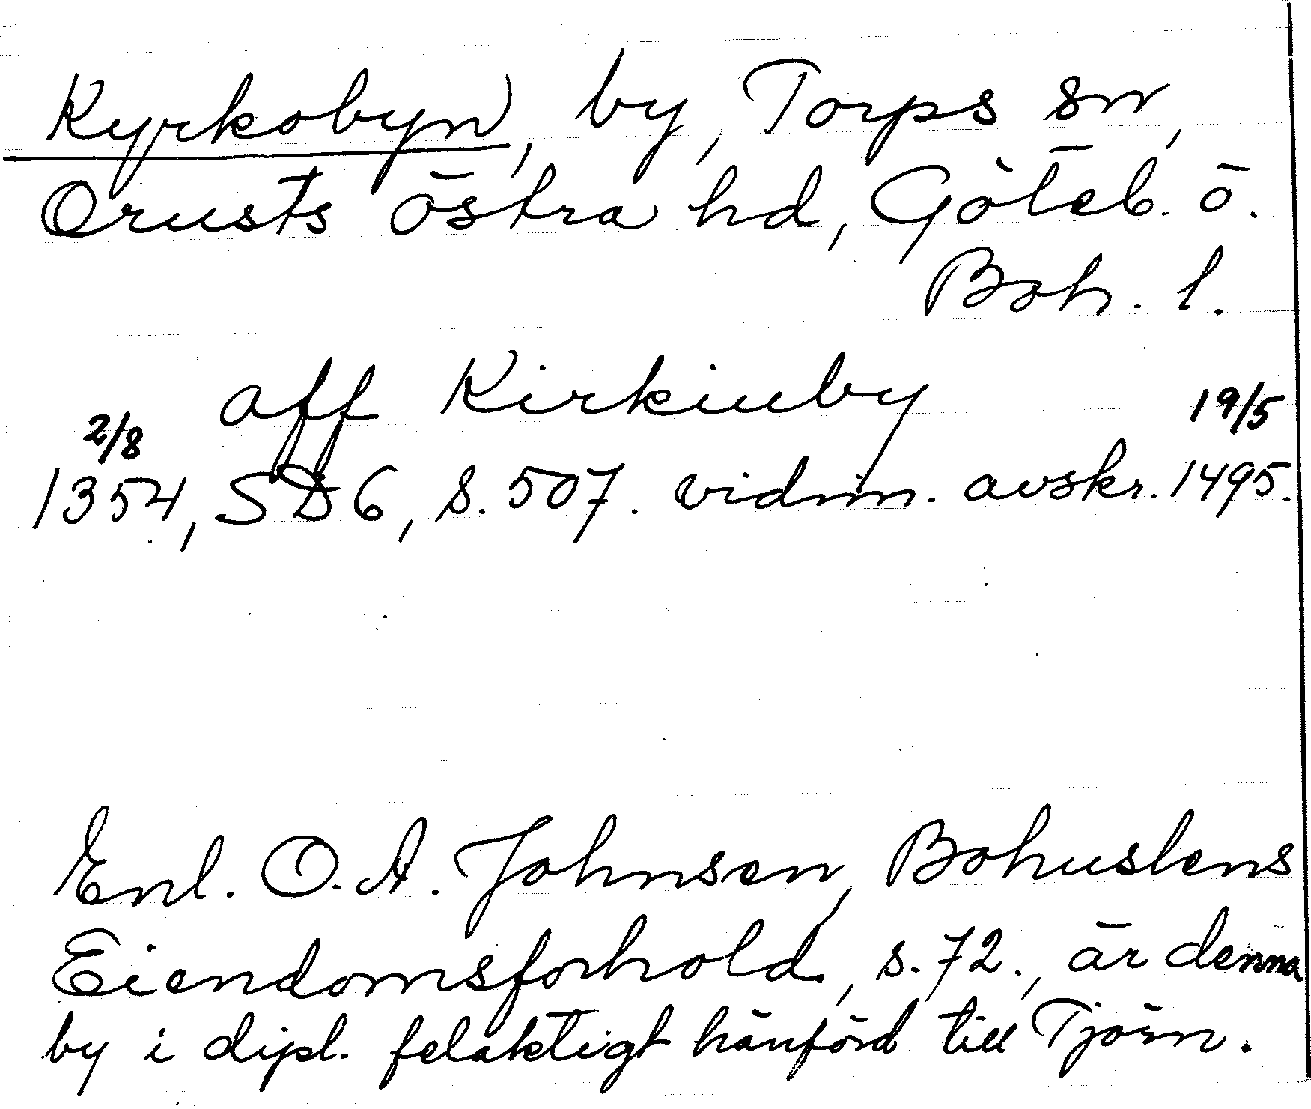 Kyrkobyn, by, Torps sn,
Orusts östra hd, Göteb. o.
Boh. l.
aff Kirkiuby
2/8 19/5
1354, SD 6, s. 507. vidim. avskr. 1495.
Enl. O. A. Johnsen, Bohuslens
Eiendomsforhold, s. 72., är denna
by i dipl. felaktigt hänförd till Tjörn.